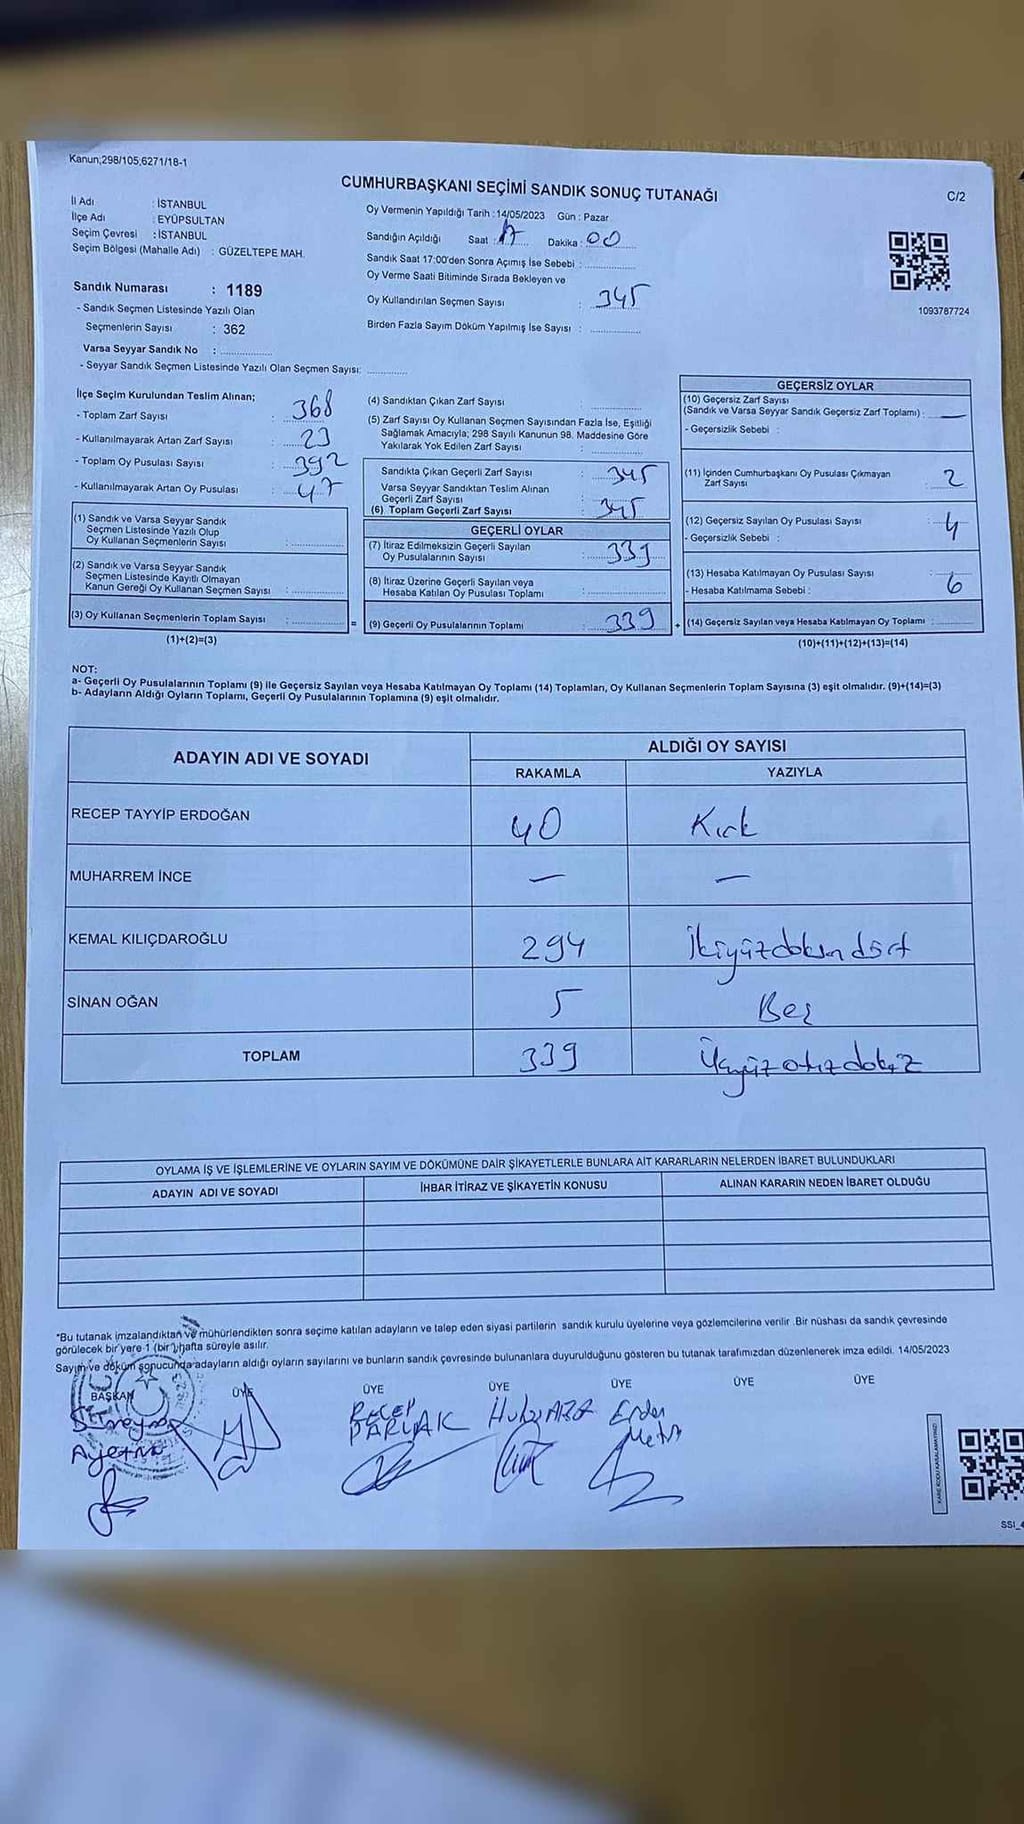 Kanun;298/105;6271/18-1
CUMHURBAŞKANI SEÇİMİ SANDIK SONUÇ TUTANAĞI
C/2
İl Adı : İSTANBUL
İlçe Adı : EYÜPSULTAN
Seçim Çevresi : İSTANBUL
Seçim Bölgesi (Mahalle Adı) : GÜZELTEPE MAH.
Sandık Numarası : 1189
- Sandık Seçmen Listesinde Yazılı Olan
Seçmenlerin Sayısı : 362
Varsa Seyyar Sandık No :
- Seyyar Sandık Seçmen Listesinde Yazılı Olan Seçmen Sayısı:
Oy Vermenin Yapıldığı Tarih : 14/05/2023 Gün : Pazar
Sandığın Açıldığı Saat : 17 Dakika : 00
Sandık Saat 17:00'den Sonra Açımış İse Sebebi :
Oy Verme Saati Bitiminde Sırada Bekleyen ve
Oy Kullandırılan Seçmen Sayısı : 345
Birden Fazla Sayım Döküm Yapılmış İse Sayısı :
1093787724
İlçe Seçim Kurulundan Teslim Alınan;
- Toplam Zarf Sayısı : 368
- Kullanılmayarak Artan Zarf Sayısı : 23
- Toplam Oy Pusulası Sayısı : 392
- Kullanılmayarak Artan Oy Pusulası : 47
(1) Sandık ve Varsa Seyyar Sandık
Seçmen Listesinde Yazılı Olup
Oy Kullanan Seçmenlerin Sayısı :
(2) Sandık ve Varsa Seyyar Sandık
Seçmen Listesinde Kayıtlı Olmayan
Kanun Gereği Oy Kullanan Seçmen Sayısı :
(3) Oy Kullanan Seçmenlerin Toplam Sayısı :
(1)+(2)=(3)
=
(4) Sandıktan Çıkan Zarf Sayısı
(5) Zarf Sayısı Oy Kullanan Seçmen Sayısından Fazla İse, Eşitliği
Sağlamak Amacıyla; 298 Sayılı Kanunun 98. Maddesine Göre
Yakılarak Yok Edilen Zarf Sayısı :
Sandıkta Çıkan Geçerli Zarf Sayısı : 345
Varsa Seyyar Sandıktan Teslim Alınan
Geçerli Zarf Sayısı :
(6) Toplam Geçerli Zarf Sayısı : 345
GEÇERLİ OYLAR
(7) İtiraz Edilmeksizin Geçerli Sayılan
Oy Pusulalarının Sayısı : 339
(8) İtiraz Üzerine Geçerli Sayılan veya
Hesaba Katılan Oy Pusulası Toplamı :
(9) Geçerli Oy Pusulalarının Toplamı : 339
+
GEÇERSİZ OYLAR
(10) Geçersiz Zarf Sayısı
(Sandık ve Varsa Seyyar Sandık Geçersiz Zarf Toplamı) : —
- Geçersizlik Sebebi :
(11) İçinden Cumhurbaşkanı Oy Pusulası Çıkmayan
Zarf Sayısı : 2
(12) Geçersiz Sayılan Oy Pusulası Sayısı : 4
- Geçersizlik Sebebi :
(13) Hesaba Katılmayan Oy Pusulası Sayısı : 6
- Hesaba Katılmama Sebebi :
(14) Geçersiz Sayılan veya Hesaba Katılmayan Oy Toplamı :
(10)+(11)+(12)+(13)=(14)
NOT:
a- Geçerli Oy Pusulalarının Toplamı (9) ile Geçersiz Sayılan veya Hesaba Katılmayan Oy Toplamı (14) Toplamları, Oy Kullanan Seçmenlerin Toplam Sayısına (3) eşit olmalıdır. (9)+(14)=(3)
b- Adayların Aldığı Oyların Toplamı, Geçerli Oy Pusulalarının Toplamına (9) eşit olmalıdır.
ADAYIN ADI VE SOYADI
ALDIĞI OY SAYISI
RAKAMLA YAZIYLA
RECEP TAYYİP ERDOĞAN 40 Kırk
MUHARREM İNCE — —
KEMAL KILIÇDAROĞLU 294 İkiyüzdoksandört
SİNAN OĞAN 5 Beş
TOPLAM 339 Üçyüzotuzdokuz
OYLAMA İŞ VE İŞLEMLERİNE VE OYLARIN SAYIM VE DÖKÜMÜNE DAİR ŞİKAYETLERLE BUNLARA AİT KARARLARIN NELERDEN İBARET BULUNDUKLARI
ADAYIN ADI VE SOYADI İHBAR İTİRAZ VE ŞİKAYETİN KONUSU ALINAN KARARIN NEDEN İBARET OLDUĞU
*Bu tutanak imzalandıktan ve mühürlendikten sonra seçime katılan adayların ve talep eden siyasi partilerin sandık kurulu üyelerine veya gözlemcilerine verilir .Bir nüshası da sandık çevresinde
görülecek bir yere 1 (bir) hafta süreyle asılır.
Sayım ve döküm sonucunda adayların aldığı oyların sayılarını ve bunların sandık çevresinde bulunanlara duyurulduğunu gösteren bu tutanak tarafımızdan düzenlenerek imza edildi. 14/05/2023
BAŞKAN ÜYE ÜYE ÜYE ÜYE ÜYE ÜYE
RECEP
PARLAK
Erden
Metin
KARE KODU KARALAMAYINIZ!